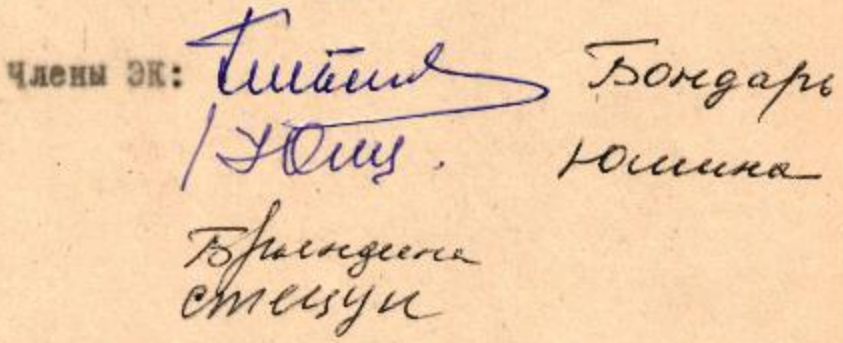 Члены ЭК: Бондарь
Юшина
Брындина
Стецун